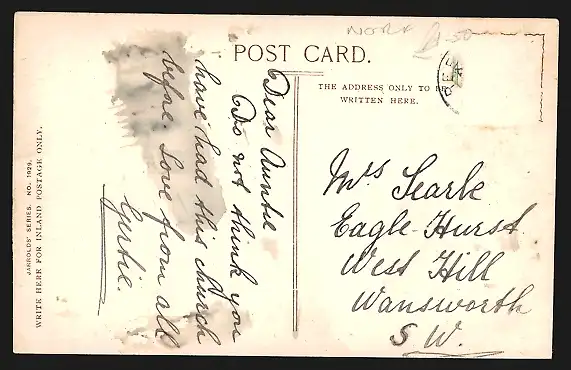 POST CARD.
NOR
THE ADDRESS ONLY TO BE
WRITTEN HERE.
JARROLDS' SERIES. NO. 1929.
WRITE HERE FOR INLAND POSTAGE ONLY.
Dear Auntie
Do not think you
have had this church
before. Love from all
Gertie
Mrs Searle
Eagle-Hurst
West Hill
Wansworth
S W.